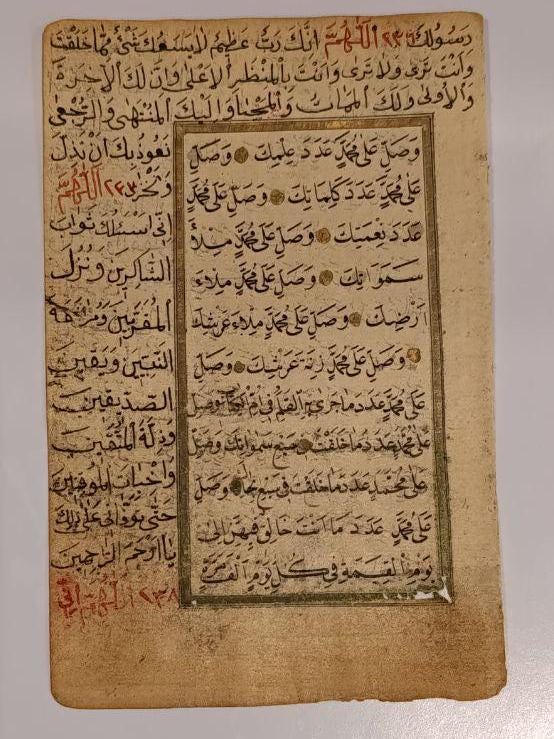 رَسُولِكَ ٢٣٦ اَللّٰهُمَّ اِنَّكَ رَبٌّ عَظِيمٌ لَا يَسَعُكَ شَيْءٌ مِمَّا خَلَقْتَ
وَاَنْتَ تَرٰى وَلَا تُرٰى وَاَنْتَ بِالْمَنْظَرِ الْاَعْلٰى وَاِنَّ لَكَ الْاٰخِرَةَ
وَالْاُولٰى وَلَكَ الْمَمَاتُ وَالْمَحْيَا وَاِلَيْكَ الْمُنْتَهٰى وَالرُّجْعٰى
نَعُوذُ بِكَ اَنْ نَذِلَّ
وَنَخْزٰى ٢٣٧ اَللّٰهُمَّ
اِنِّى اَسْئَلُكَ ثَوَابَ
الشَّاكِرِينَ وَنُزُلَ
الْمُقَرَّبِينَ وَمُرَافَقَةَ
النَّبِيِّينَ وَيَقِينَ
الصِّدِّيقِينَ
وَذِلَّةَ الْمُتَّقِينَ
وَاِخْبَاتَ الْمُوقِنِينَ
حَتّٰى تَوَفَّانِى عَلٰى ذٰلِكَ
يَا اَرْحَمَ الرَّاحِمِينَ
٢٣٨ اَللّٰهُمَّ اِنِّى
وَصَلِّ عَلٰى مُحَمَّدٍ عَدَدَ عِلْمِكَ وَصَلِّ
عَلٰى مُحَمَّدٍ عَدَدَ كَلِمَاتِكَ وَصَلِّ عَلٰى مُحَمَّدٍ
عَدَدَ نِعْمَتِكَ وَصَلِّ عَلٰى مُحَمَّدٍ مِلْأَ
سَمَوَاتِكَ وَصَلِّ عَلٰى مُحَمَّدٍ مِلَاءَ
اَرْضِكَ وَصَلِّ عَلٰى مُحَمَّدٍ مِلَاءَ عَرْشِكَ
وَصَلِّ عَلٰى مُحَمَّدٍ زِنَةَ عَرْشِكَ وَصَلِّ
عَلٰى مُحَمَّدٍ عَدَدَ مَا جَرٰى بِهِ الْقَلَمُ فِى اُمِّ الْكِتَابِ وَصَلِّ
عَلٰى مُحَمَّدٍ عَدَدَ مَا خَلَقْتَ سَبْعِ سَمَوَاتِكَ وَصَلِّ
عَلٰى مُحَمَّدٍ عَدَدَ مَا خَلَقْتَ فِى سَبْعِ وَصَلِّ
عَلٰى مُحَمَّدٍ عَدَدَ مَا اَنْتَ خَالِقٌ فِيهِنَّ اِلٰى
يَوْمِ الْقِيمَةِ فِى كُلِّ يَوْمٍ اَلْفَ مَرَّةٍ